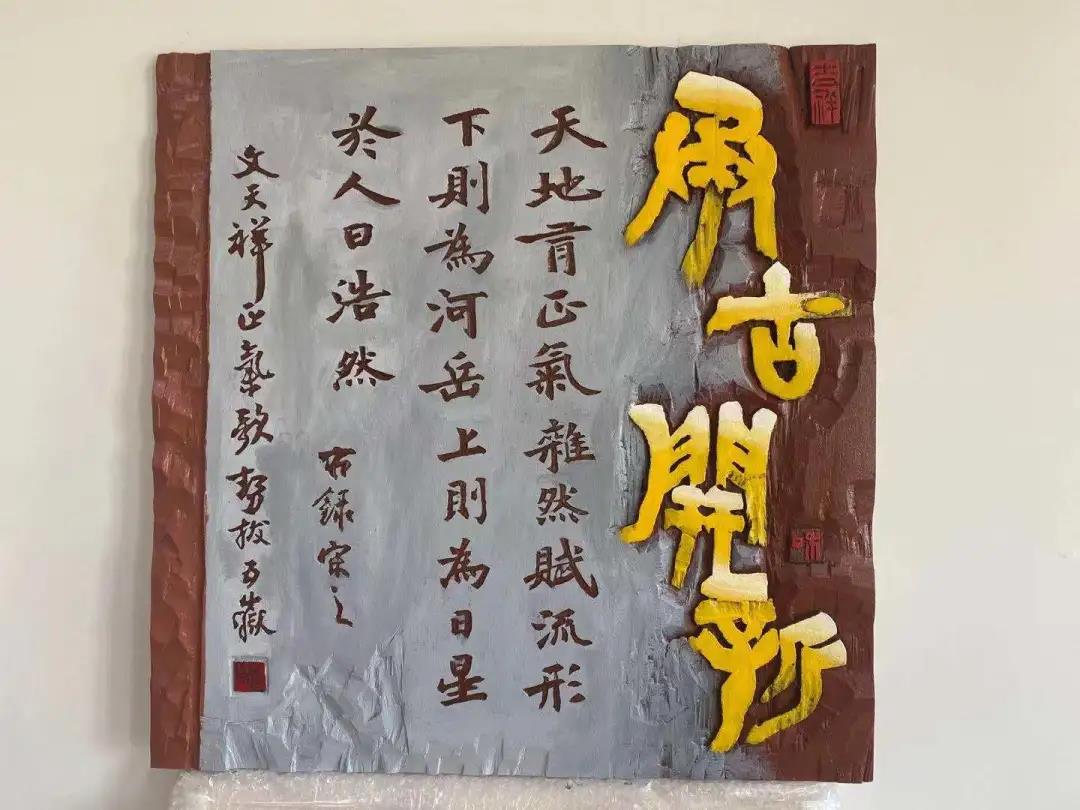 古開新
天地有正氣雜然賦流形
下則為河岳上則為日星
於人曰浩然 右録宋之
文天祥正氣歌 拔五嶽
吉祥